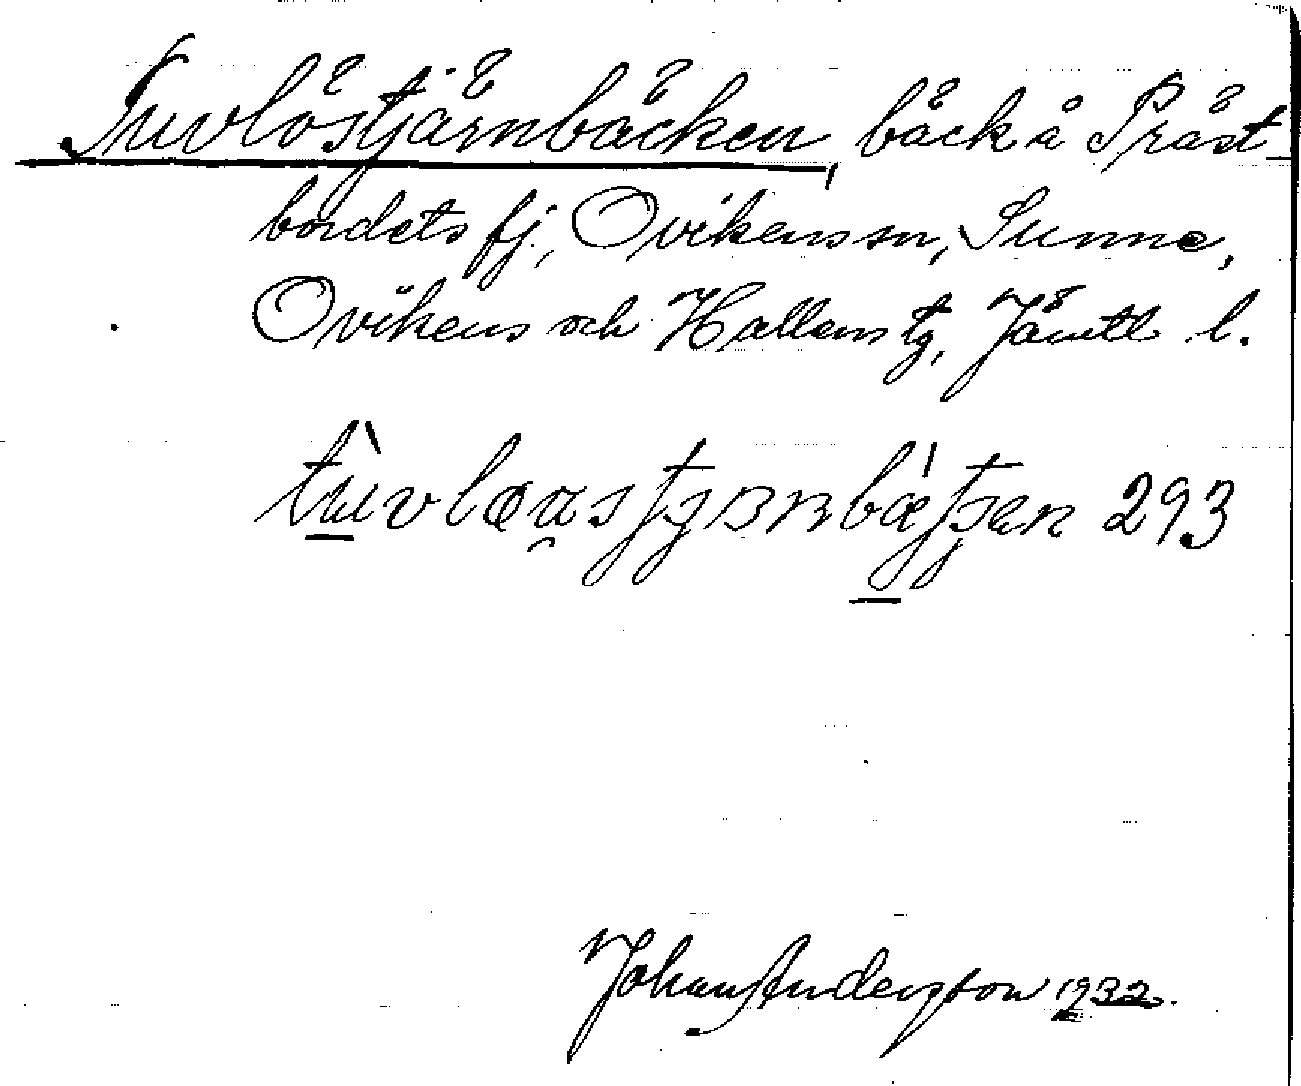 Tuvlöstjärnbäcken, bäck å Präst-
bordets fj., Ovikens sn, Sunne,
Ovikens och Hallens tg, Jämtl l.
293
Johan Andersson 1932.